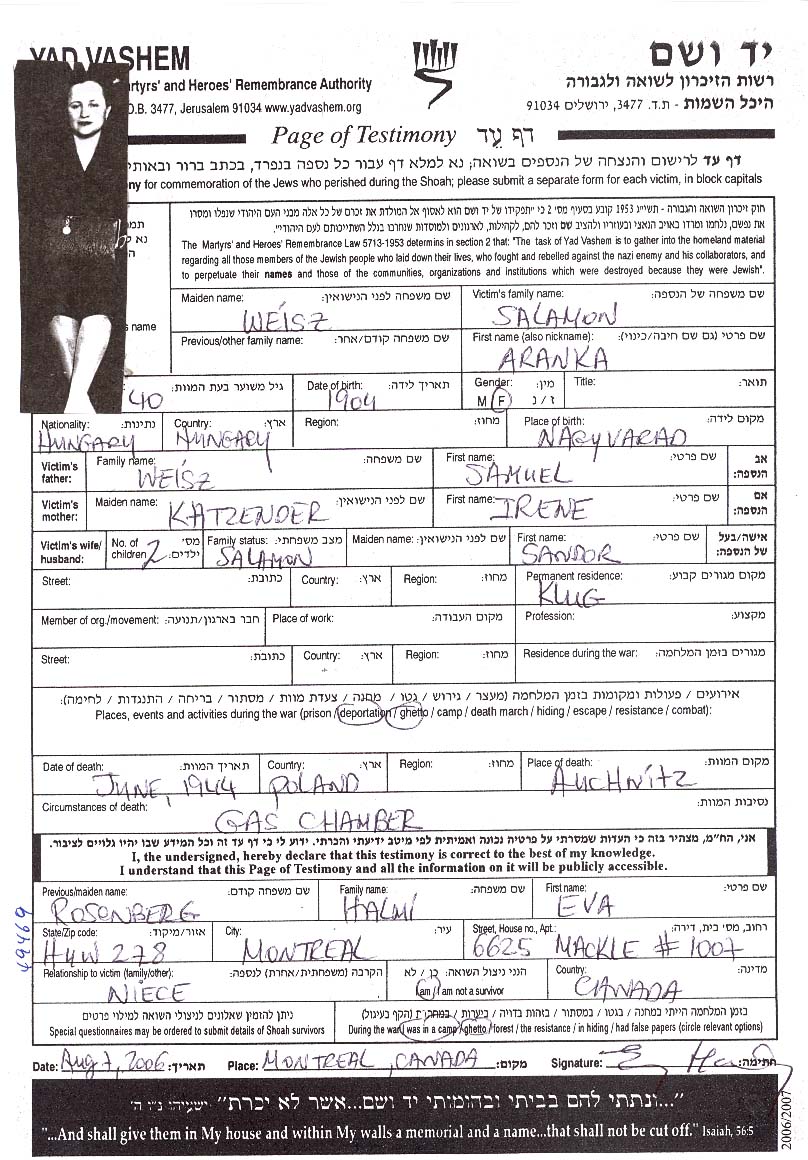 YAD VASHEM
יד ושם
rtyrs' and Heroes' Remembrance Authority
רשות הזיכרון לשואה ולגבורה
O.B. 3477, Jerusalem 91034 www.yadvashem.org
היכל השמות - ת.ד. 3477, ירושלים 91034
Page of Testimony דף עד
דף עד לרישום והנצחה של הנספים בשואה; נא למלא דף עבור כל נספה בנפרד, בכתב ברור ובאותי
ny for commemoration of the Jews who perished during the Shoah; please submit a separate form for each victim, in block capitals
חוק זיכרון השואה והגבורה - תשי"ג 1953 קובע בסעיף מס' 2 כי "תפקידו של יד ושם הוא לאסוף אל המולדת את זכרם של כל אלה מבני העם היהודי שנפלו ומסרו
את נפשם, נלחמו ומרדו באויב הנאצי ובעוזריו ולהציב שם וזכר להם, לקהילות, לארגונים ולמוסדות שנחרבו בגלל השתייכותם לעם היהודי".
The Martyrs' and Heroes' Remembrance Law 5713-1953 determins in section 2 that: "The task of Yad Vashem is to gather into the homeland material
regarding all those members of the Jewish people who laid down their lives, who fought and rebelled against the nazi enemy and his collaborators, and
to perpetuate their names and those of the communities, organizations and institutions which were destroyed because they were Jewish".
Maiden name: שם משפחה לפני הנישואין: Victim's family name: שם משפחה של הנספה:
WEISZ SALAMON
s name
Previous/other family name: שם משפחה קודם/אחר: First name (also nickname): שם פרטי (גם שם חיבה/כינוי):
ARANKA
גיל משוער בעת המוות: Date of birth: תאריך לידה: Gender: מין: Title: תואר:
40 1904 M F ז / נ
Nationality: נתינות: Country: ארץ: Region: מחוז: Place of birth: מקום לידה:
HUNGARY HUNGARY NAGYVARAD
Victim's father: Family name: שם משפחה: First name: שם פרטי: אב הנספה:
WEISZ SAMUEL
Victim's mother: Maiden name: שם לפני הנישואין: First name: שם פרטי: אם הנספה:
KATZENDER IRENE
Victim's wife/ husband: No. of children מס' ילדים: Family status: מצב משפחתי: Maiden name: שם לפני הנישואין: First name: שם פרטי: אישה/בעל של הנספה:
2 SALAMON SANDOR
Street: כתובת: Country: ארץ: Region: מחוז: Permanent residence: מקום מגורים קבוע:
KLUG
Member of org./movement: חבר בארגון/תנועה: Place of work: מקום העבודה: Profession: מקצוע:
Street: כתובת: Country: ארץ: Region: מחוז: Residence during the war: מגורים בזמן המלחמה:
אירועים / פעולות ומקומות בזמן המלחמה (מעצר / גירוש / גטו / מחנה / צעדת מוות / מסתור / בריחה / התנגדות / לחימה):
Places, events and activities during the war (prison / deportation / ghetto / camp / death march / hiding / escape / resistance / combat):
Date of death: תאריך המוות: Country: ארץ: Region: מחוז: Place of death: מקום המוות:
JUNE, 1944 POLAND AUCHNITZ
Circumstances of death: נסיבות המוות:
GAS CHAMBER
אני, הח"מ, מצהיר בזה כי העדות שמסרתי על פרטיה נכונה ואמיתית לפי מיטב ידיעתי והכרתי. ידוע לי כי דף עד זה וכל המידע שבו יהיו גלויים לציבור.
I, the undersigned, hereby declare that this testimony is correct to the best of my knowledge.
I understand that this Page of Testimony and all the information on it will be publicly accessible.
Previous/maiden name: שם משפחה קודם: Family name: שם משפחה: First name: שם פרטי:
ROSENBERG HALMI EVA
State/Zip code: אזור/מיקוד: City: עיר: Street, House no., Apt.: רחוב, מס' בית, דירה:
H4W 2T8 MONTREAL 6625 MACKLE # 1007
49469
Relationship to victim (family/other): הקרבה (משפחתית/אחרת) לנספה: הנני ניצול השואה: כן / לא Country: מדינה:
NIECE I am / I am not a survivor CANADA
ניתן להזמין שאלונים לניצולי השואה למילוי פרטים
Special questionnaires may be ordered to submit details of Shoah survivors
בזמן המלחמה הייתי במחנה / בגטו / במסתור / בזהות בדויה / ביערות / במחתרת (הקף בעיגול)
During the war I was in a camp / ghetto / forest / the resistance / in hiding / had false papers (circle relevant options)
Date: Aug 7, 2006 תאריך: Place: MONTREAL, CANADA מקום: Signature: חתימה:
"...ונתתי להם בביתי ובחומותי יד ושם...אשר לא יכרת" ישעיהו נ"ו ה'
"...And shall give them in My house and within My walls a memorial and a name...that shall not be cut off." Isaiah, 56:5
2006/2007